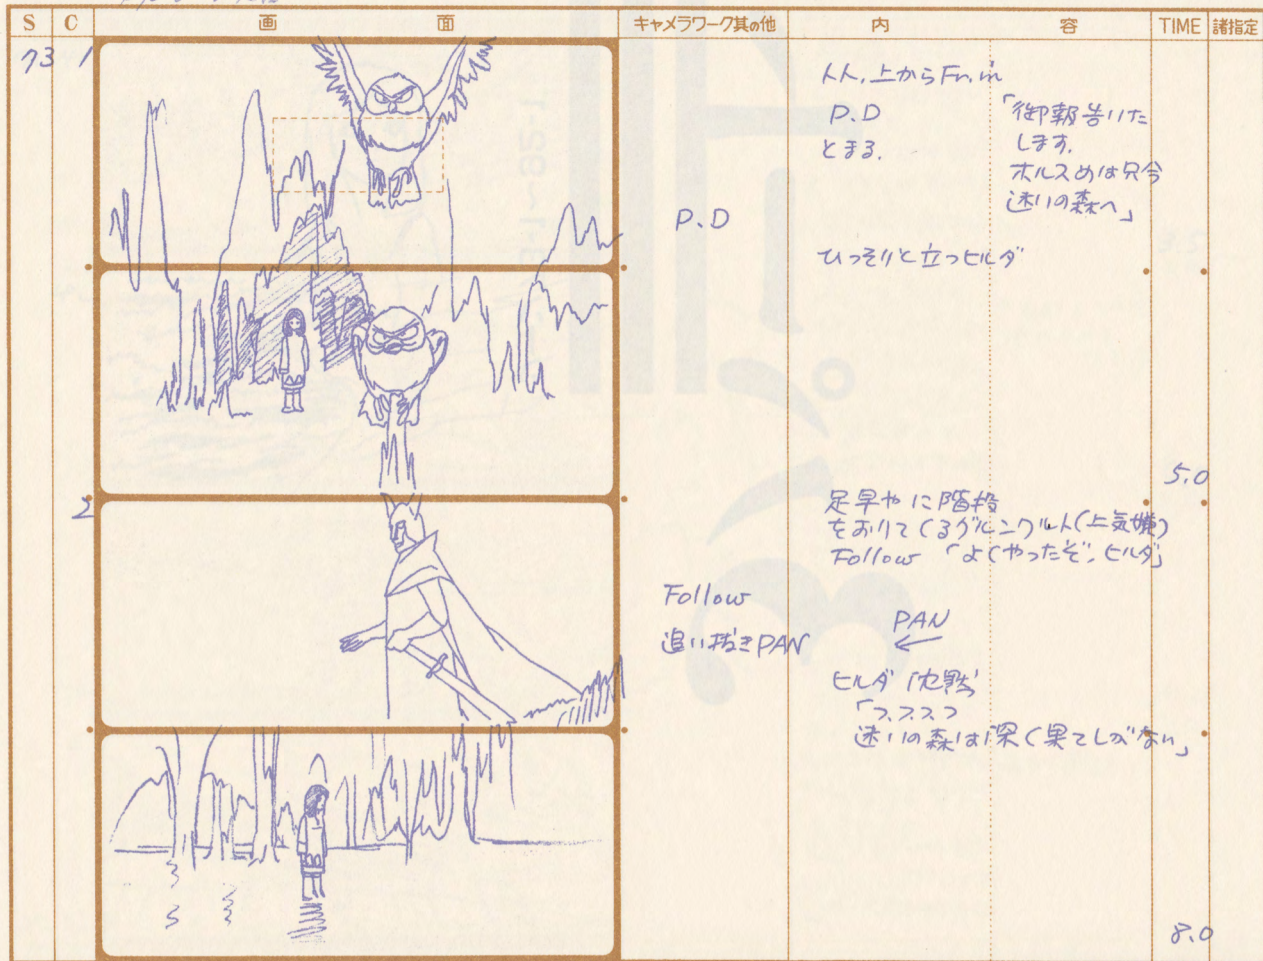 S C 画 面 キャメラワーク其の他 内 容 TIME 諸指定
73 1
トト、上からFr.in
P.D
とまる。
「御報告いた
します。
ホルスめは只今
迷いの森へ」
P.D
ひっそりと立つヒルダ
5.0
2
足早やに階段
をおりてくるグルンワルト(上気嫌)
Follow 「よくやったぞ、ヒルダ」
Follow
追い描きPAN
PAN
ヒルダ沈黙
「フフフフ
迷いの森は深く果てしがない」
8.0